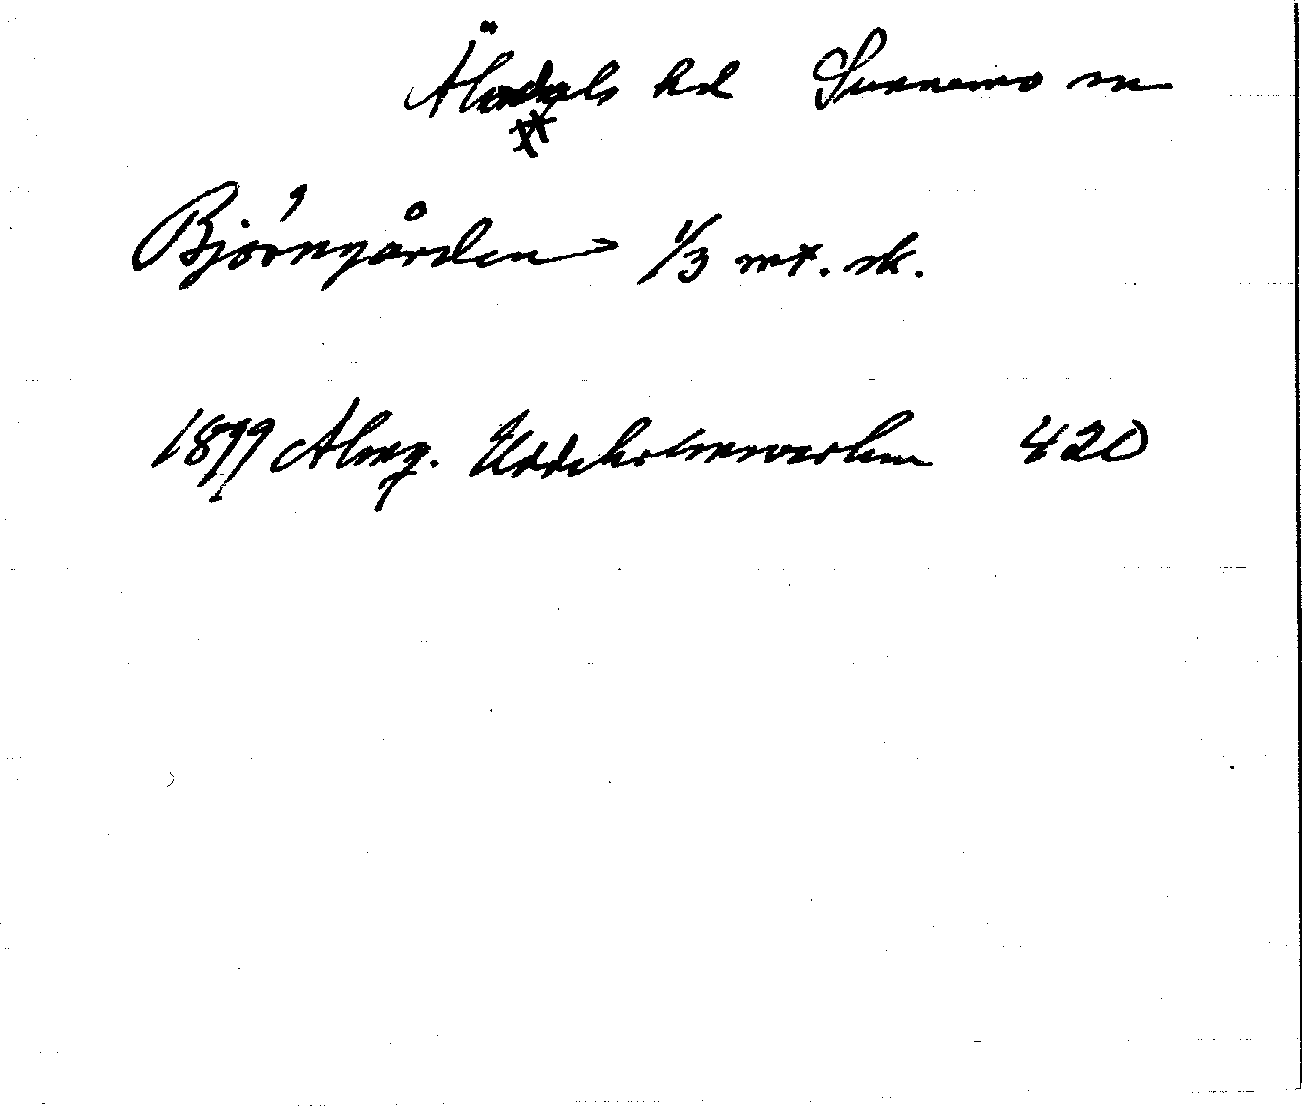 Älvdals hd Sunnemo sn
Björngården 1/3 mt. sk.
1899 Almq. Uddeholmsverken 420